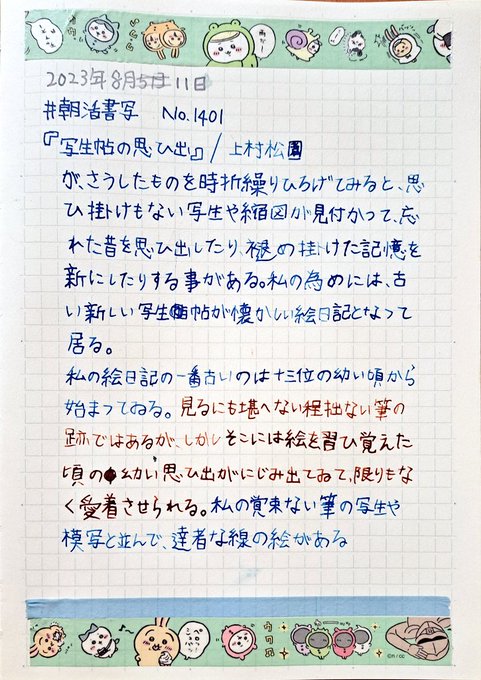 2023年8月5日 11日
#朝活書写 No.1401
『写生帖の思ひ出』/上村松園
が、さうしたものを時折繰りひろげてみると、思
ひ掛けもない写生や縮図が見付かつて、忘
れた昔を思ひ出したり、褪め掛けた記憶を
新にしたりする事がある。私の為めには、古
い新しい写生帖が懐かしい絵日記となつて
居る。
私の絵日記の一番古いのは十三位の幼い頃から
始まつてゐる。見るにも堪へない程拙ない筆の
跡ではあるが、しかしそこには絵を習ひ覚えた
頃の幼い思ひ出がにじみ出てゐて、限りもな
く愛着させられる。私の覚束ない筆の写生や
模写と並んで、達者な線の絵がある